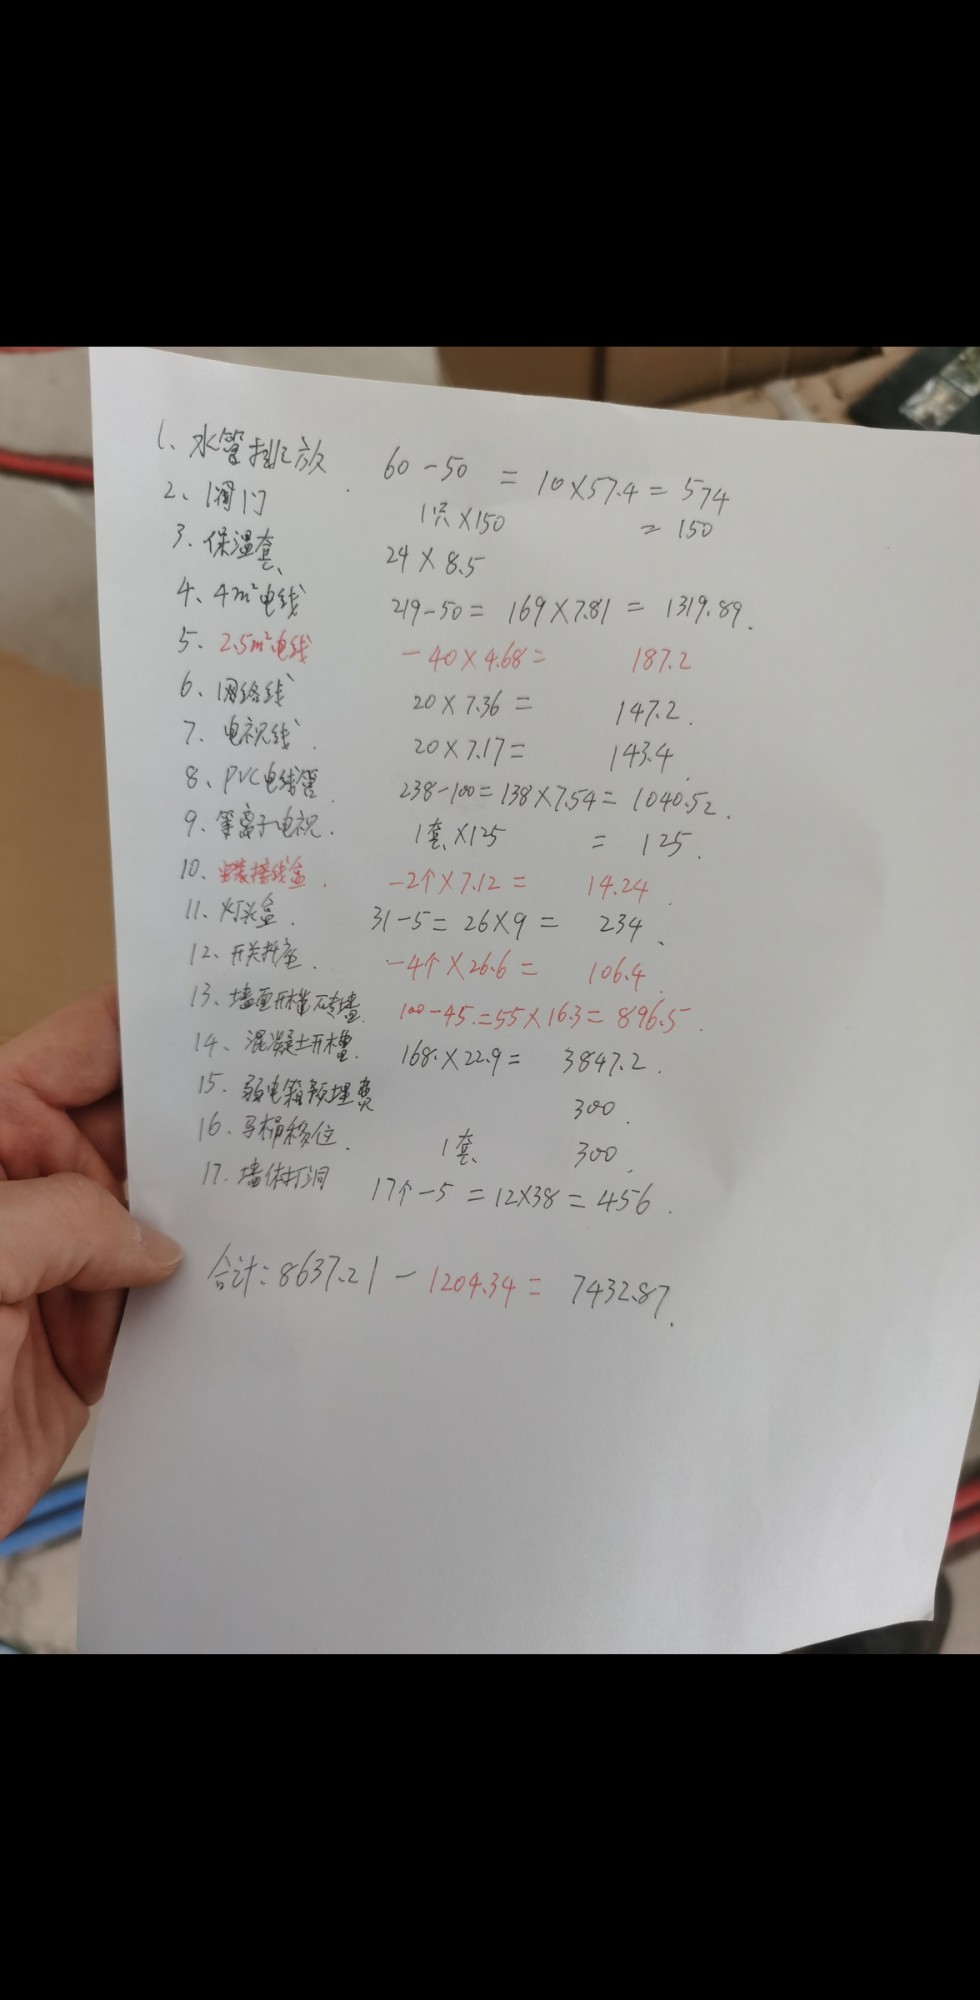 1、水管排放 60-50 = 10×57.4 = 574
2、阀门 1只×150 = 150
3、保温套 24×8.5
4、4m²电线 219-50 = 169×7.81 = 1319.89.
5、2.5m²电线 -40×4.68 = 187.2
6、网络线 20×7.36 = 147.2.
7、电视线. 20×7.17 = 143.4.
8、PVC电线管. 238-100 = 138×7.54 = 1040.52.
9、等离子电视. 1套×125 = 125.
10、安装接线盒. -2个×7.12 = 14.24.
11、灯头盒. 31-5 = 26×9 = 234.
12、开关插座. -4个×26.6 = 106.4.
13、墙面开槽砖墙. 100-45. = 55×16.3 = 896.5.
14、混凝土开槽. 168.×22.9 = 3847.2.
15、弱电箱预埋费 300.
16、马桶移位. 1套 300.
17、墙体打洞 17个-5 = 12×38 = 456.
合计: 8637.21 - 1204.34 = 7432.87.